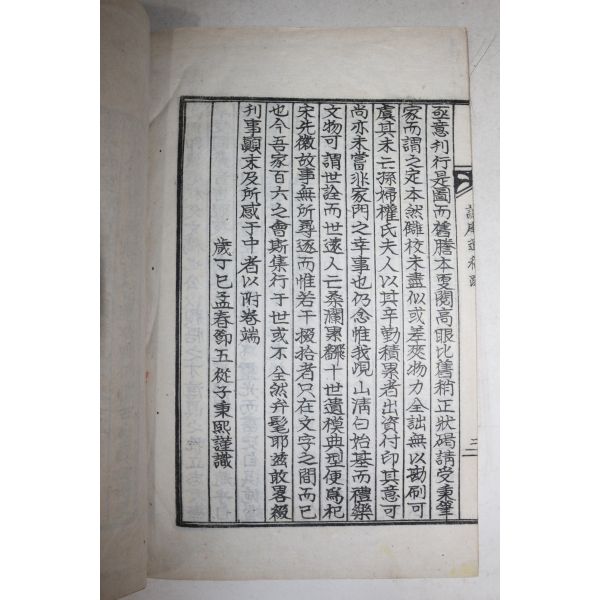 亟意刊行是圖而舊謄本更閱高眼比舊稍正狀碣請受秉筆
家而謂之定本然雠校未盡似或差爽物力全詘無以勘刷可
虞其未亡孫婦權氏夫人以其辛勤積累者出資付印其意可
尚亦未嘗非家門之幸事也仍念惟我峴山淸白始基而禮樂
文物可謂世詮而世遠人亡桑瀾累飜十世遺模典型便爲杞
宋先徵故事無所尋逐而惟若干掇拾者只在文字之間而已
也今吾家百六之會斯集行于世或不全然弁髦耶玆敢畧綴
刊事顚末及所感于中者以附卷端
歲丁巳孟春節五從子秉熙謹識
三